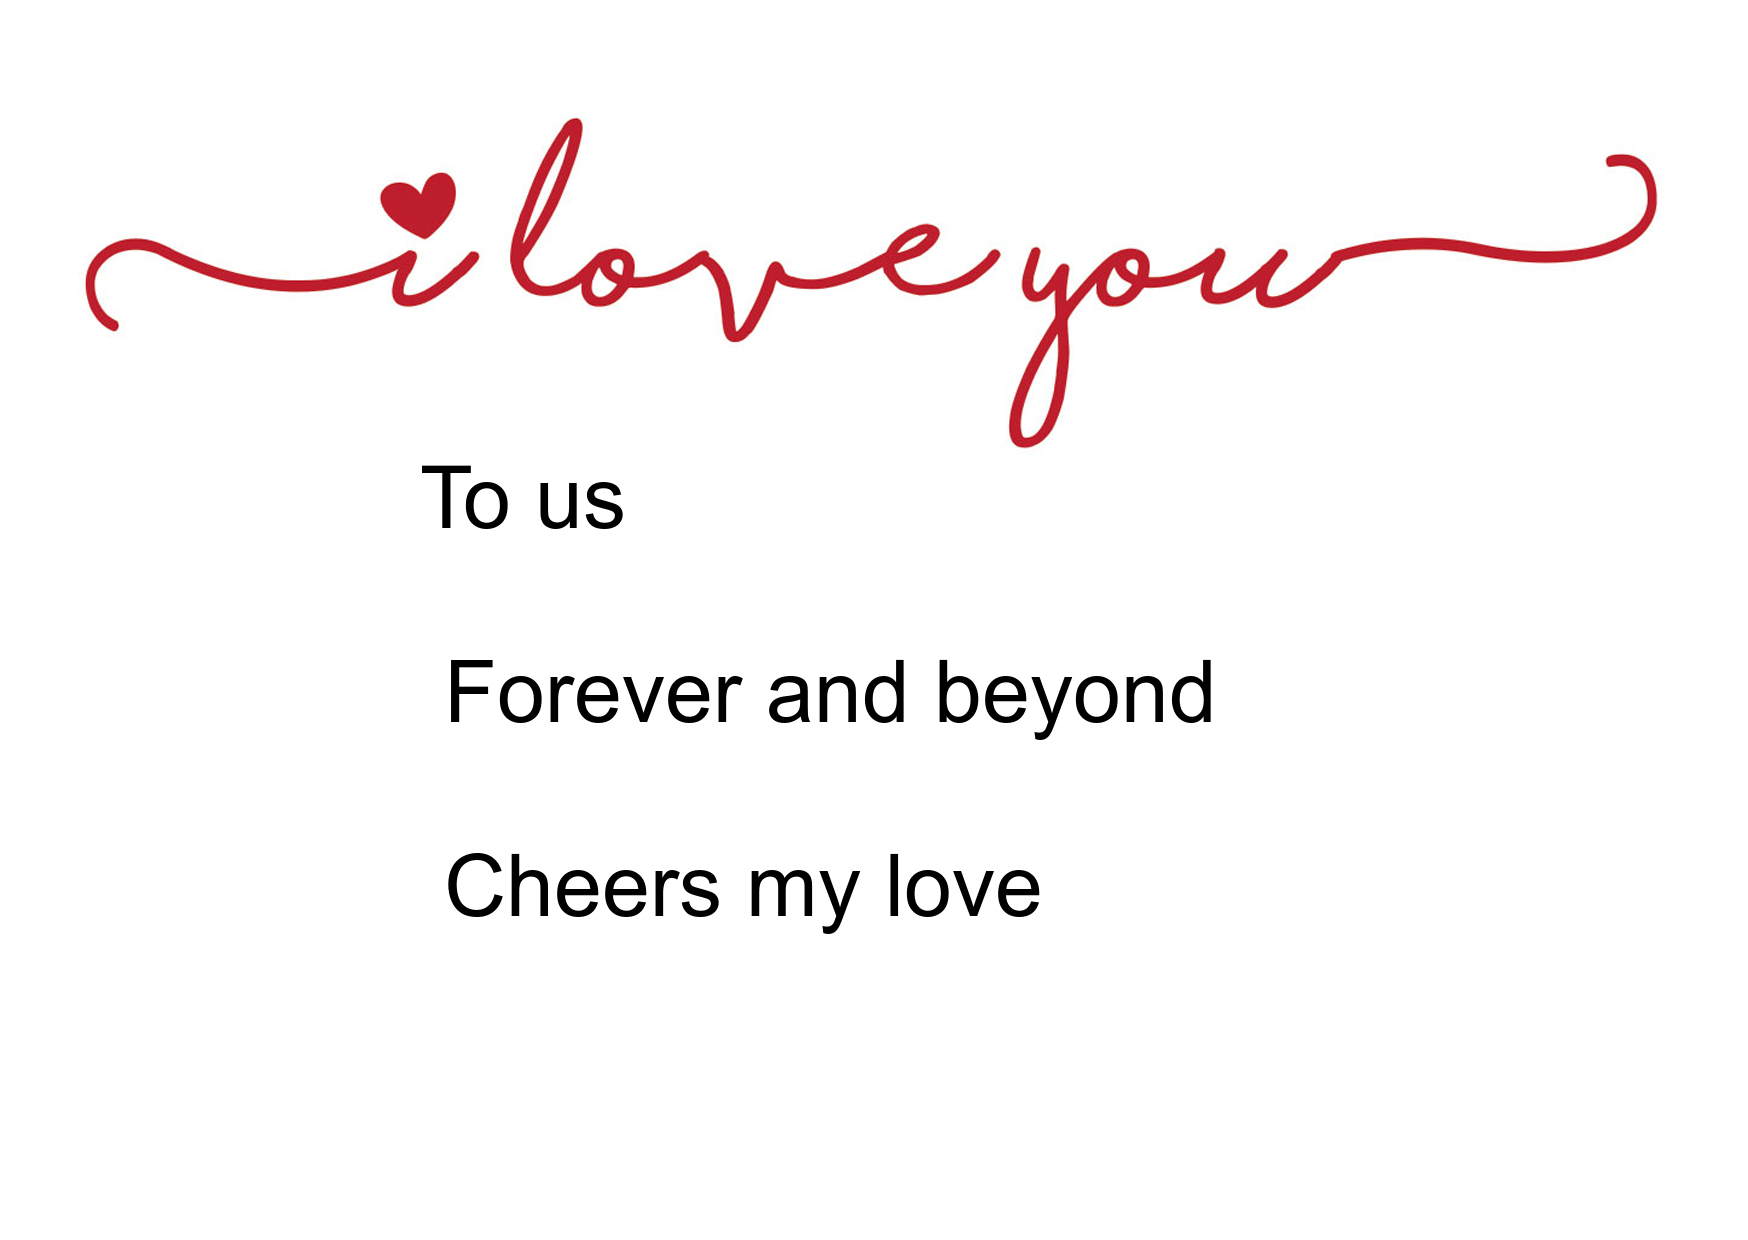 i love you
To us
Forever and beyond
Cheers my love